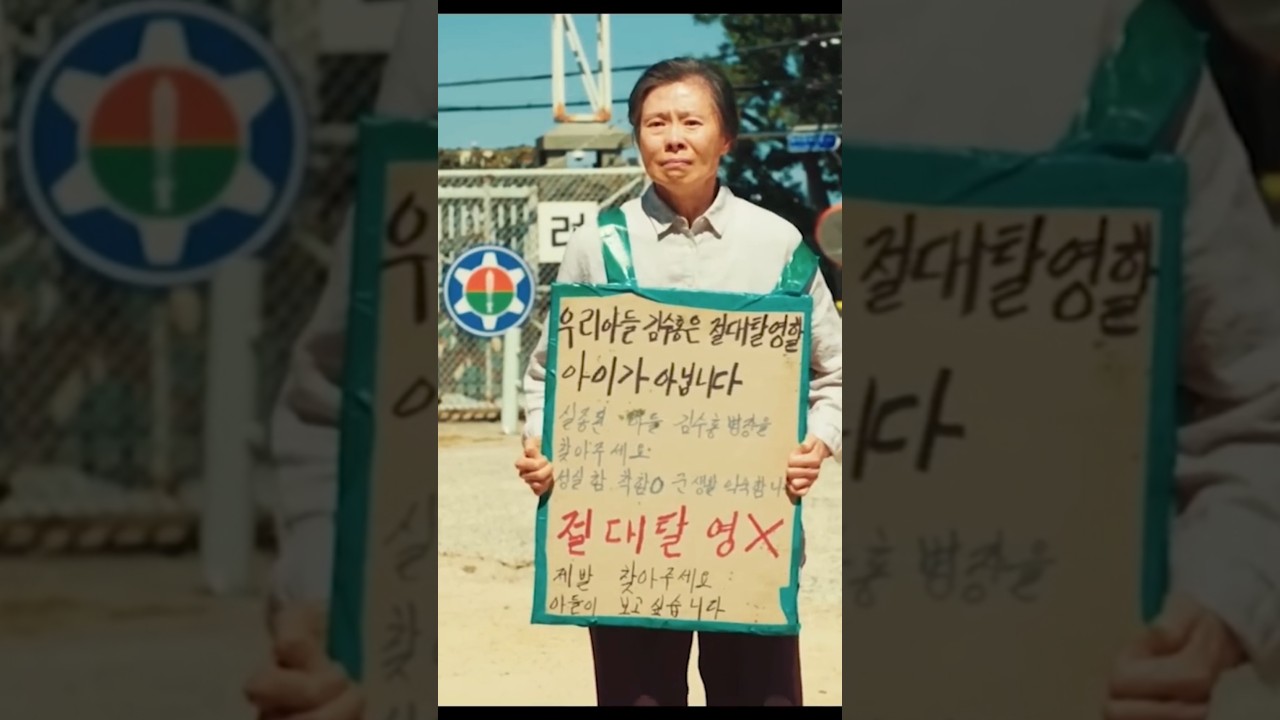 러
우리아들 김수홍은 절대탈영할
아이가 아닙니다
실종된 아들 김수홍 병장을
찾아주세요
성실함 착함O 군생활 익숙합니
절대탈영X
제발 찾아주세요
아들이 보고싶습니다